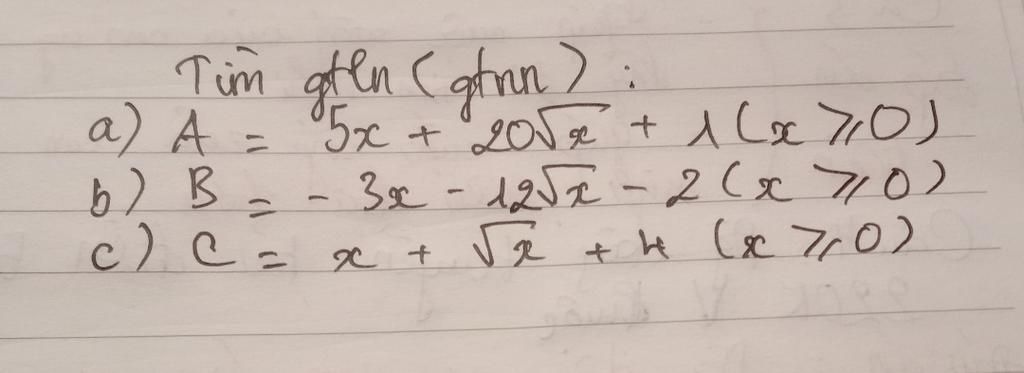 Tìm gtln (gtnn) :
a) A = 5x + 20√x + 1 (x ⩾ 0)
b) B = - 3x - 12√x - 2 (x ⩾ 0)
c) C = x + √x + 4 (x ⩾ 0)